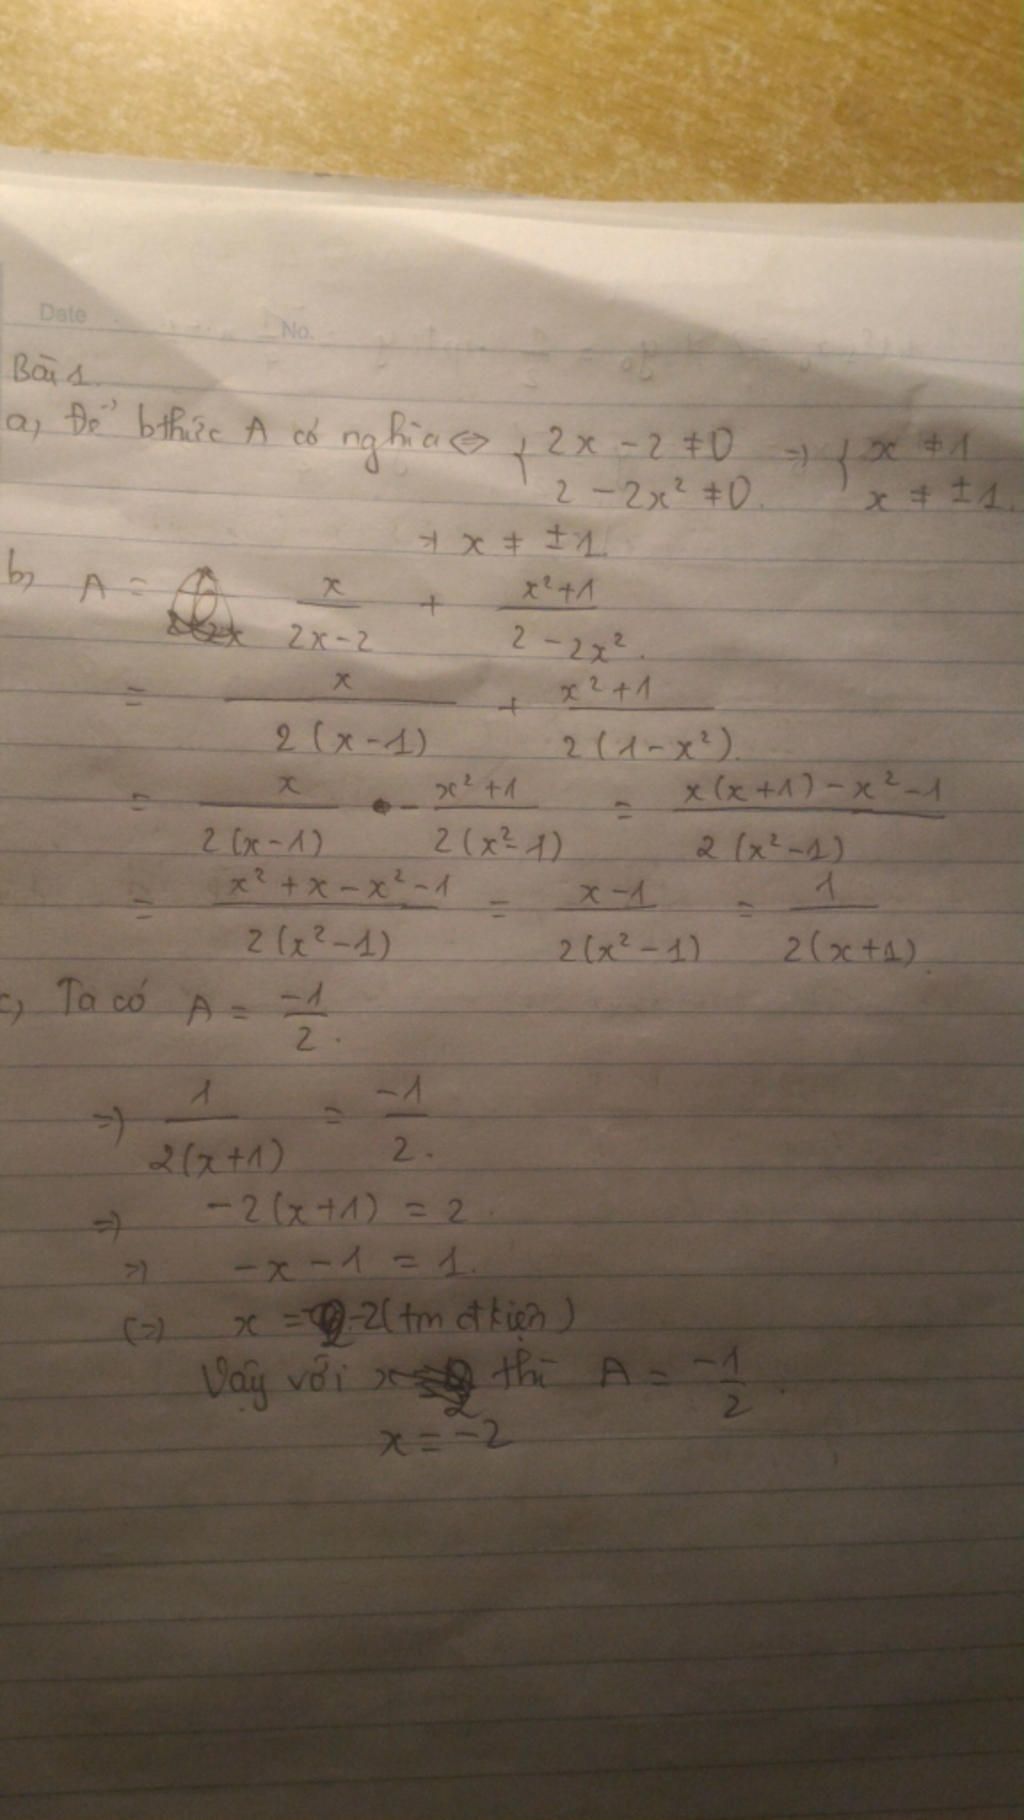 Date
No.
Bài 1.
a, Để bthức A có nghĩa <=> { 2x - 2 ≠ 0 => { x ≠ 1
2 - 2x² ≠ 0. x ≠ ±1.
→ x ≠ ±1.
b, A = x/(2x-2) + (x²+1)/(2-2x²).
= x/(2(x-1)) + (x²+1)/(2(1-x²)).
= x/(2(x-1)) - (x²+1)/(2(x²-1)) = (x(x+1)-x²-1)/(2(x²-1))
= (x²+x-x²-1)/(2(x²-1)) = (x-1)/(2(x²-1)) = 1/(2(x+1)).
c, Ta có A = -1/2.
=> 1/(2(x+1)) = -1/2.
=> -2(x+1) = 2.
=> -x-1 = 1.
(=> x = -2 (tm đkiện)
Vậy với thì A = -1/2.
x = -2